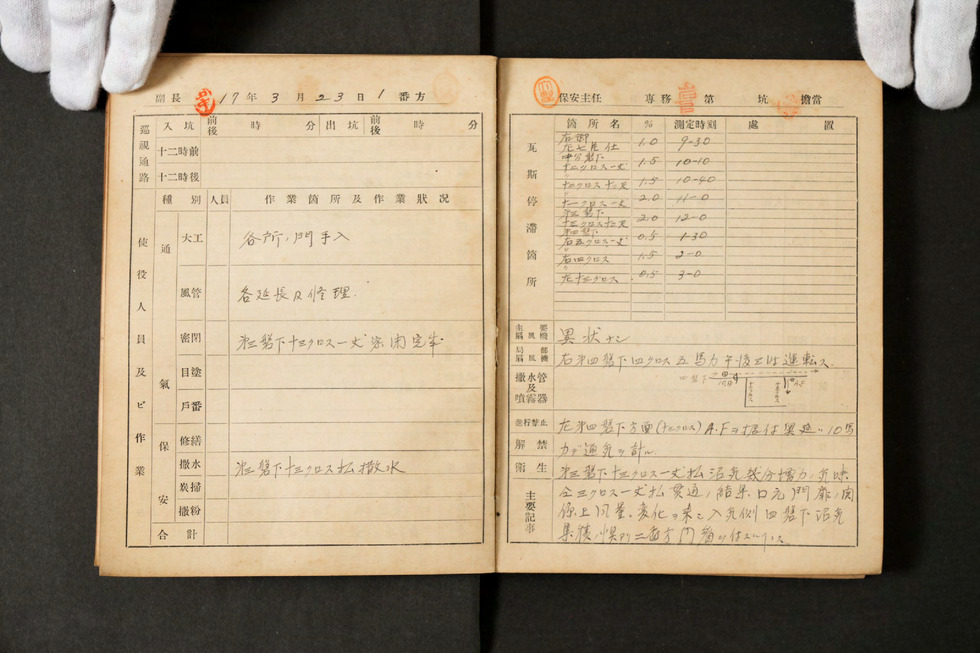 副長 17年3月23日1番方
巡視通路 入坑 前後 時 分 出坑 前後 時 分
十二時前
十二時後
使役人員及ビ作業
種別 人員 作業箇所及作業狀況
通氣
大工 各所ノ門手入
風管 各延長及修理.
密閉 第三盤下十三クロス一丈密閉完本
目塗
戶番
保安
修繕
撒水 第三盤下十三クロス払撒水
炭掃
撒粉
合計
保安主任 專務 第 坑 擔當
瓦斯停滯箇所
箇所名 % 測定時刻 處置
右卸
左七片仕 1.0 9-30
中分盤下
十三クロス一丈 1.5 10-10
十三クロス 1.5 10-40
十一クロス一丈 2.0 11-0
第三盤下
2.0 12-0
第四盤下
右五クロス一丈 0.5 1-30
右四クロス 1.5 2-0
左十三クロス 0.5 3-0
主要扇風機 異狀ナシ
局部扇風機 右第四盤下四クロス五馬力午後ヨリ運転ス.
撒水管及噴霧器
四盤下
進行禁止 左第四盤下方面(十三クロス)A.Fヲ据付 10馬
解禁 力デ通気ヲ計ル
衛生
主要記事
第三盤下十三クロス一丈払沼気幾分増力、
三クロス一丈払貫通ノ結果口元門扉ノ関
係上風量ノ変化ヲ来シ入気側四盤下沼気
集積ノ惧アリ二番方門番ヲ仕